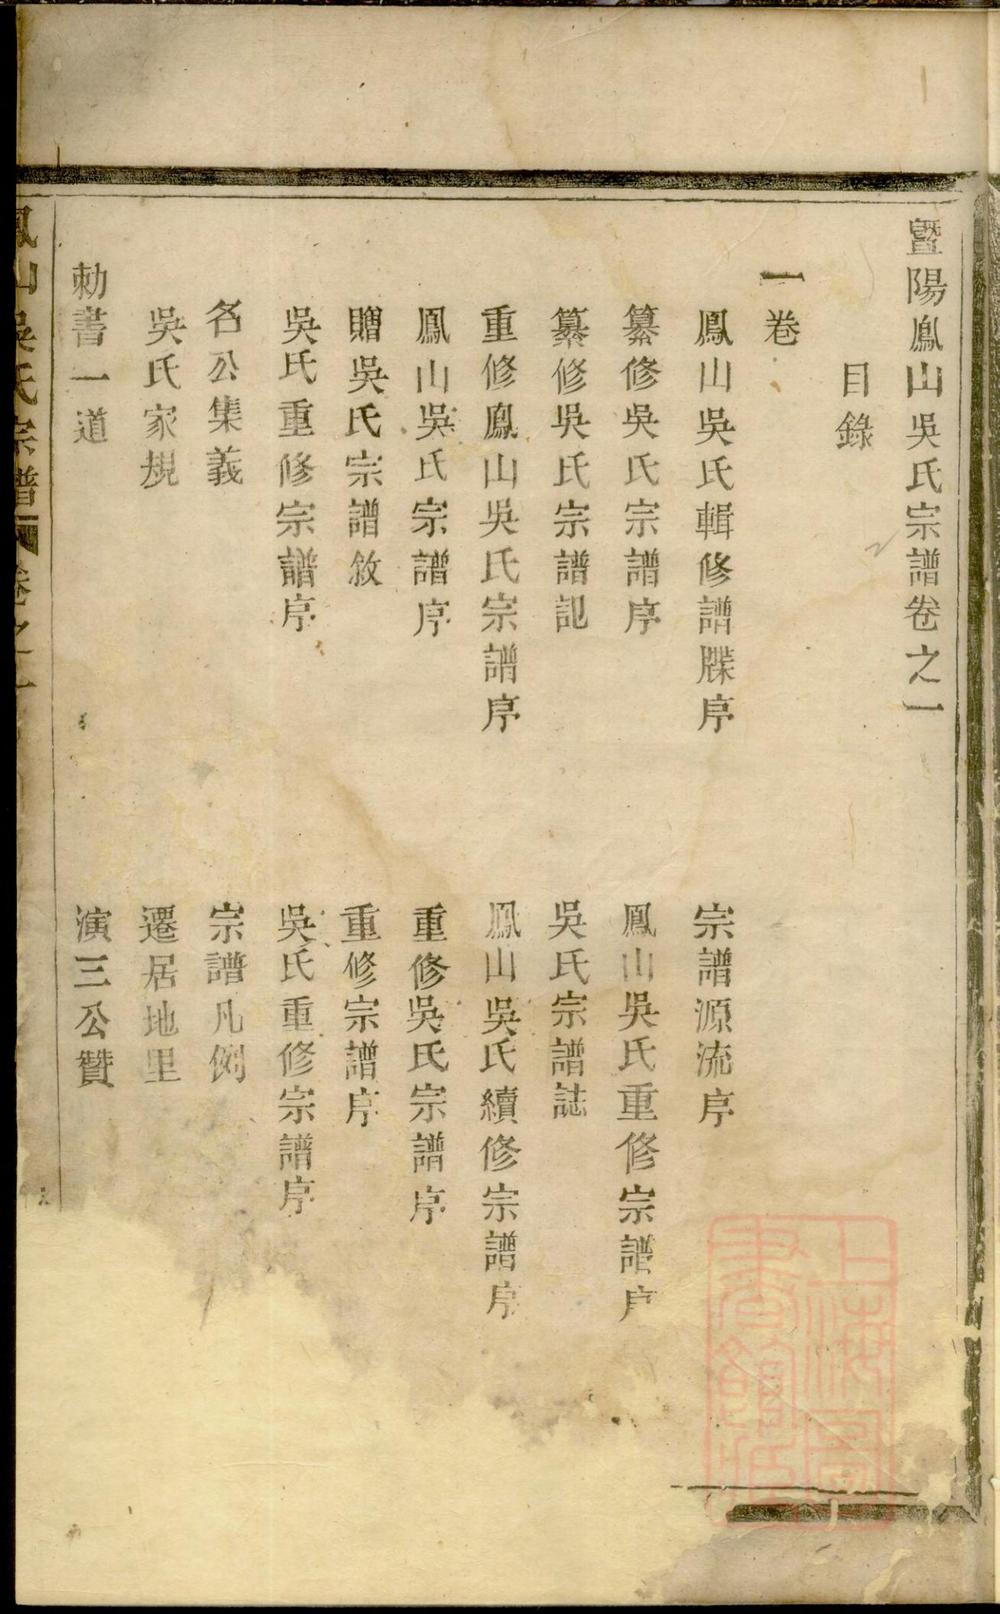 暨陽鳳山吳氏宗譜卷之一
目錄
一卷
鳳山吳氏輯修譜牒序
宗譜源流序
纂修吳氏宗譜序
鳳山吳氏重修宗譜序
纂修吳氏宗譜記
吳氏宗譜誌
重修鳳山吳氏宗譜序
鳳山吳氏續修宗譜序
鳳山吳氏宗譜序
重修吳氏宗譜序
贈吳氏宗譜敘
重修宗譜序
吳氏重修宗譜序
吳氏重修宗譜序
名公集義
宗譜凡例
吳氏家規
遷居地里
勅書一道
演三公贊
鳳山吳氏宗譜
卷之一
上海圖書館藏